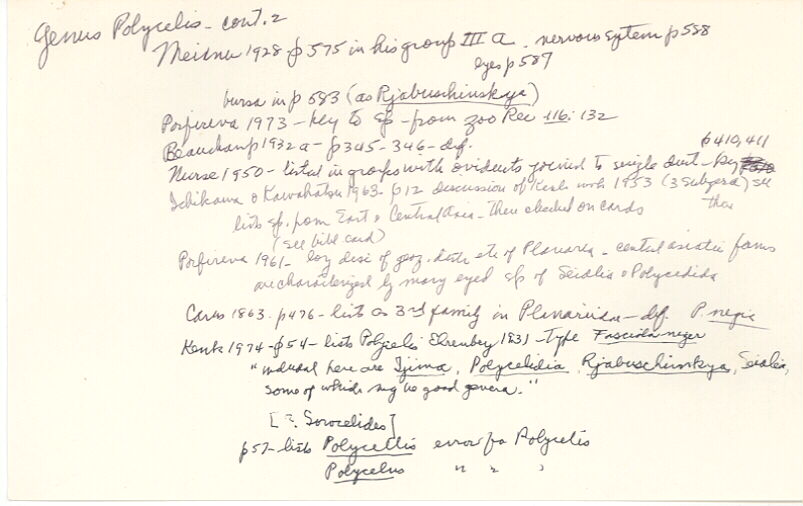 Genus Polycelis - cont. 2
Meixner 1928 - p 575 in his group III a. nervous system p 588
eyes p 587
bursa in p 583 (as Rjabuschinskya)
Porfireva 1973 - key to sp - from Zoo Rec 116: 132
Beauchamp 1932a - p345-346 - def.
p 410, 411
Nurse 1950 - listed in groups with oviducts joined to single duct - key
Ichikawa & Kawakatsu 1963 - p12 discussion of Kenk work 1953 (3 subgenera) see
lists sp. from East & Central Asia - then checked on cards
(see bibl card)
Porfireva 1961 - long disc of geog. distr etc of Planaria - central asiatic forms
are characterized by many eyed sp of Seidlia & Polycelidia
Carus 1863 - p476 - lists as 3rd family in Planariidae - def. P. negra
Kenk 1974 - p54 - lists Polycelis Ehrenberg 1831 - type Fasciola nigra
"included here are Ijima, Polycelidia, Rjabuschinskya, Seidlia,
some of which may be good genera."
[?. Sorocelides]
p57 - lists Polycellis error for Polycelis
Polycelus " " ,